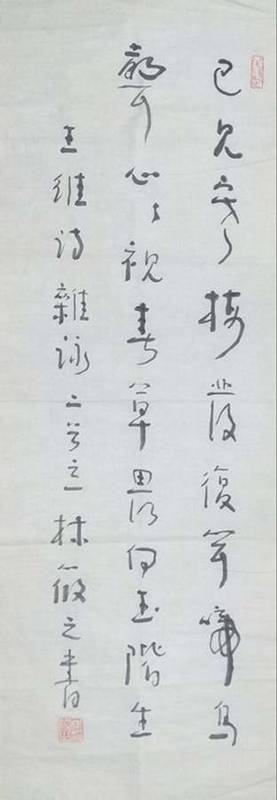 已見寒梅發復聞啼鳥
聲心〻視春草畏向玉階生
王維詩雜詠二首之林筱之書